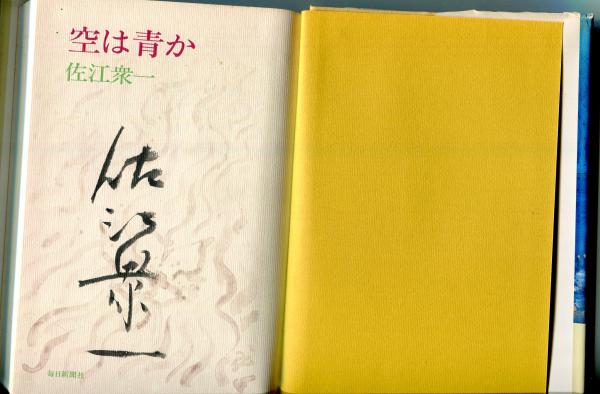 空は青か
佐江衆一
佐江衆一
毎日新聞社